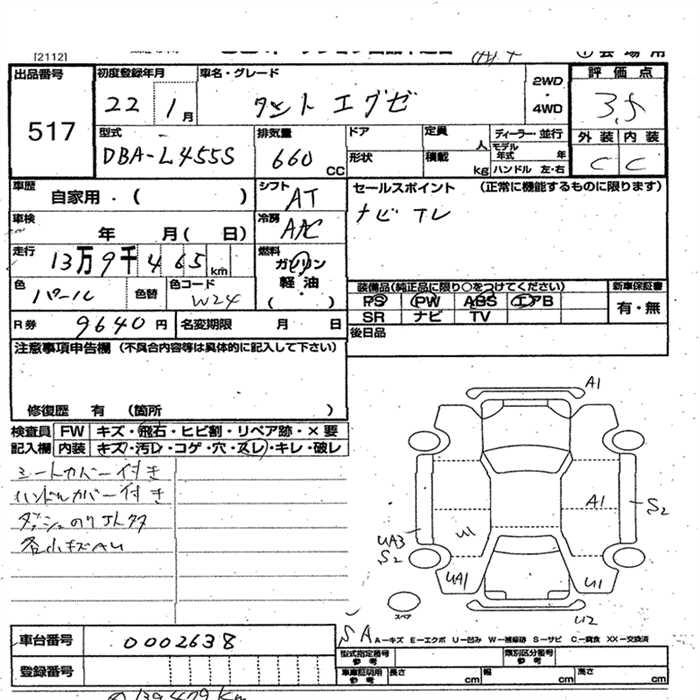 [2112]
出品番号 517
初度登録年月 22 1月
車名・グレード タント エグゼ
2WD ・ 4WD
評価点 3.5
型式 DBA-L455S
排気量 660 CC
ドア 形状
定員 人 積載 kg
ディーラー・並行
モデル年式 年
ハンドル 左・右
外装 内装
C C
車歴 自家用・( )
シフト AT
セールスポイント (正常に機能するものに限ります)
ナビ TV
車検 年 月( 日)
冷房 AAC
走行 13万9千465km
燃料 ガソリン 軽油 ( )
色 パール 色替 色コード W24
装備品(純正品に限り○をつけてください) 新車保証書
PS PW ABS エアB 有・無
SR ナビ TV
R券 9640円 名変期限 月 日
後日品
注意事項申告欄 (不具合内容等は具体的に記入して下さい)
修復歴 有 (箇所 )
検査員 FW キズ・飛石・ヒビ割・リペア跡・×要
記入欄 内装 キズ・汚レ・コゲ・穴・スレ・キレ・破レ
シートカバー付き
ハンドルカバー付き
各小キズAU
A1
A1
S2
U1
UA3
S2
UA1
U1
スペア
U2
SA
A−キズ E−エクボ U−凹み W−補修跡 S−サビ C−腐食 XX−交換済
車台番号 0002638
型式指定番号 参考 類別区分番号 参考
登録番号
車庫証明用 参考 長さ cm 幅 cm 高さ cm